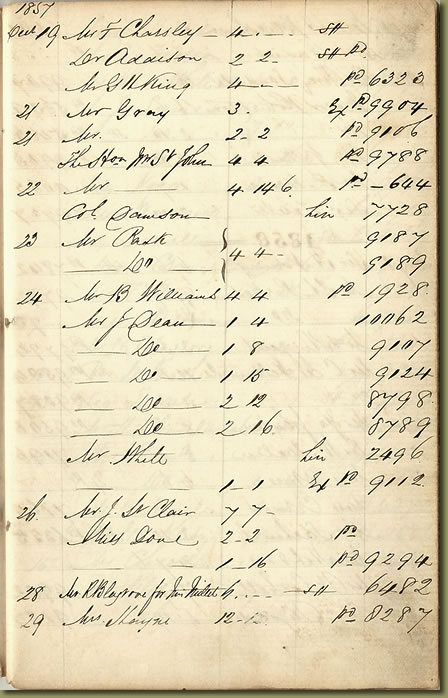 1857
Oct 19 Mr F Chassley - 4 . - - SH
Dr Addison 2 2 - SH Pd
Mr G H King 4 - - Pd 6323
21 Mr Gray 3 . Ex Pd 9904
21 Mr. 2 - 2 Pd 9106
The Hon Mr St John 4 4 Pd 9788
22 Mr —— 4 14 6 Pd - 644
Col. Dawson Lin 7728
23 Mr Pask 9187
—— Do 4 4 - 9189
24 Mr B Williams 4 4 Pd 1928
Mr J Dean 1 4 10062
—— Do —— 1 8 9107
—— Do —— 1 15 9124
—— Do —— 2 12 8798
—— Do —— 2 16 8789
Mr White Lin 2496
—— 1 - 1 Ex Pd 9112
26 Mr J. St Clair 7 7 -
Miss Dove 2 - 2 Pd
—— 1 - 16 Pd 9294
28 Mr R Blagrove for 6 . - - SH 6482
29 Mrs. Thayne 12 - 12 Pd 8287